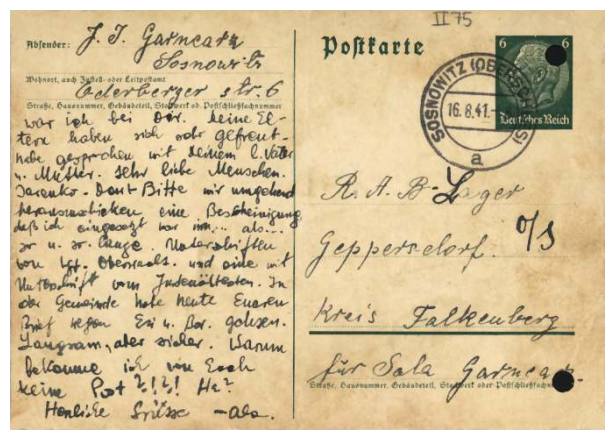 II 75
Absender: J. J. Garncarz
Sosnowitz
Wohnort, auch Zustell- oder Leitpostamt
Oderberger str. 6
Straße, Hausnummer, Gebäudeteil, Stockwerk od. Postschließfachnummer
war ich bei Dir. Deine El-
tern haben sich sehr gefreut-
habe gesprochen mit deinem l. Vater
u. Mutter. Sehr liebe Menschen.
Bitte mir umgehend
herauszuschicken eine Bescheinigung
daß ich eingesetzt war als...
so u. so lange. Unterschriften
von und eine mit
Unterschrift vom Judenältesten. In
der Gemeinde habe heute Eueren
Brief wegen u. gelesen.
Langsam, aber sicher. Warum
bekomme ich von Euch
keine Post?!?! He?
Herzliche Grüsse -als.
Postkarte
6 6
Deutsches Reich
SOSNOWITZ (OBERSCHLES)
16.8.41.-
a
R. A. B- Lager
Geppersdorf. O/S
Kreis Falkenberg
für Sala Garncarz.
Straße, Hausnummer, Gebäudeteil, Stockwerk oder Postschließfachnummer